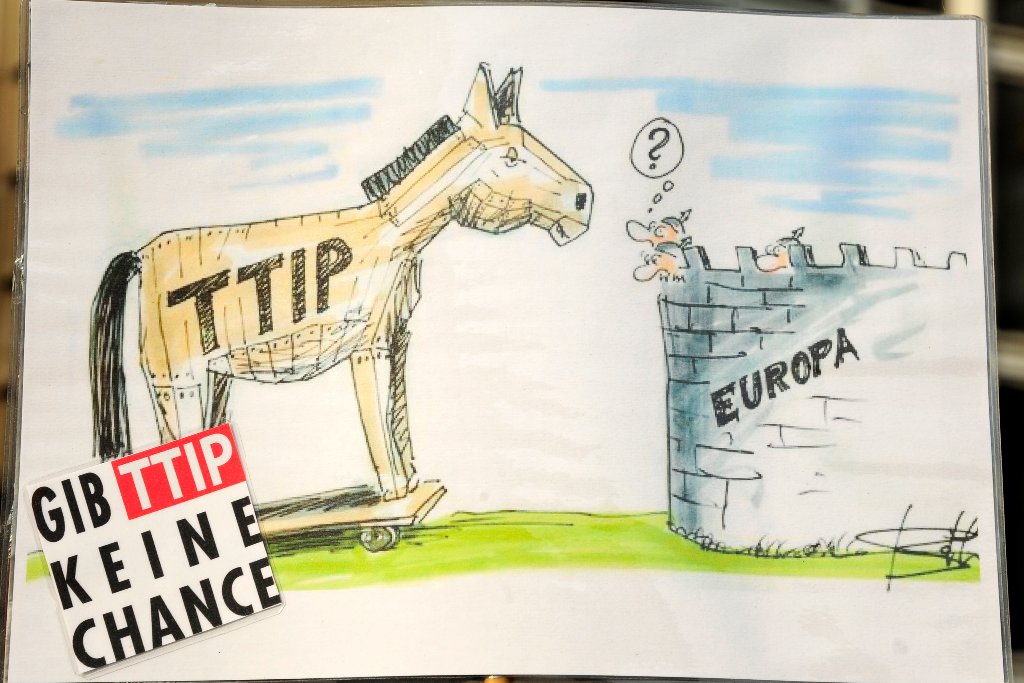 ?
TTIP
EUROPA
GIB TTIP
KEINE
CHANCE